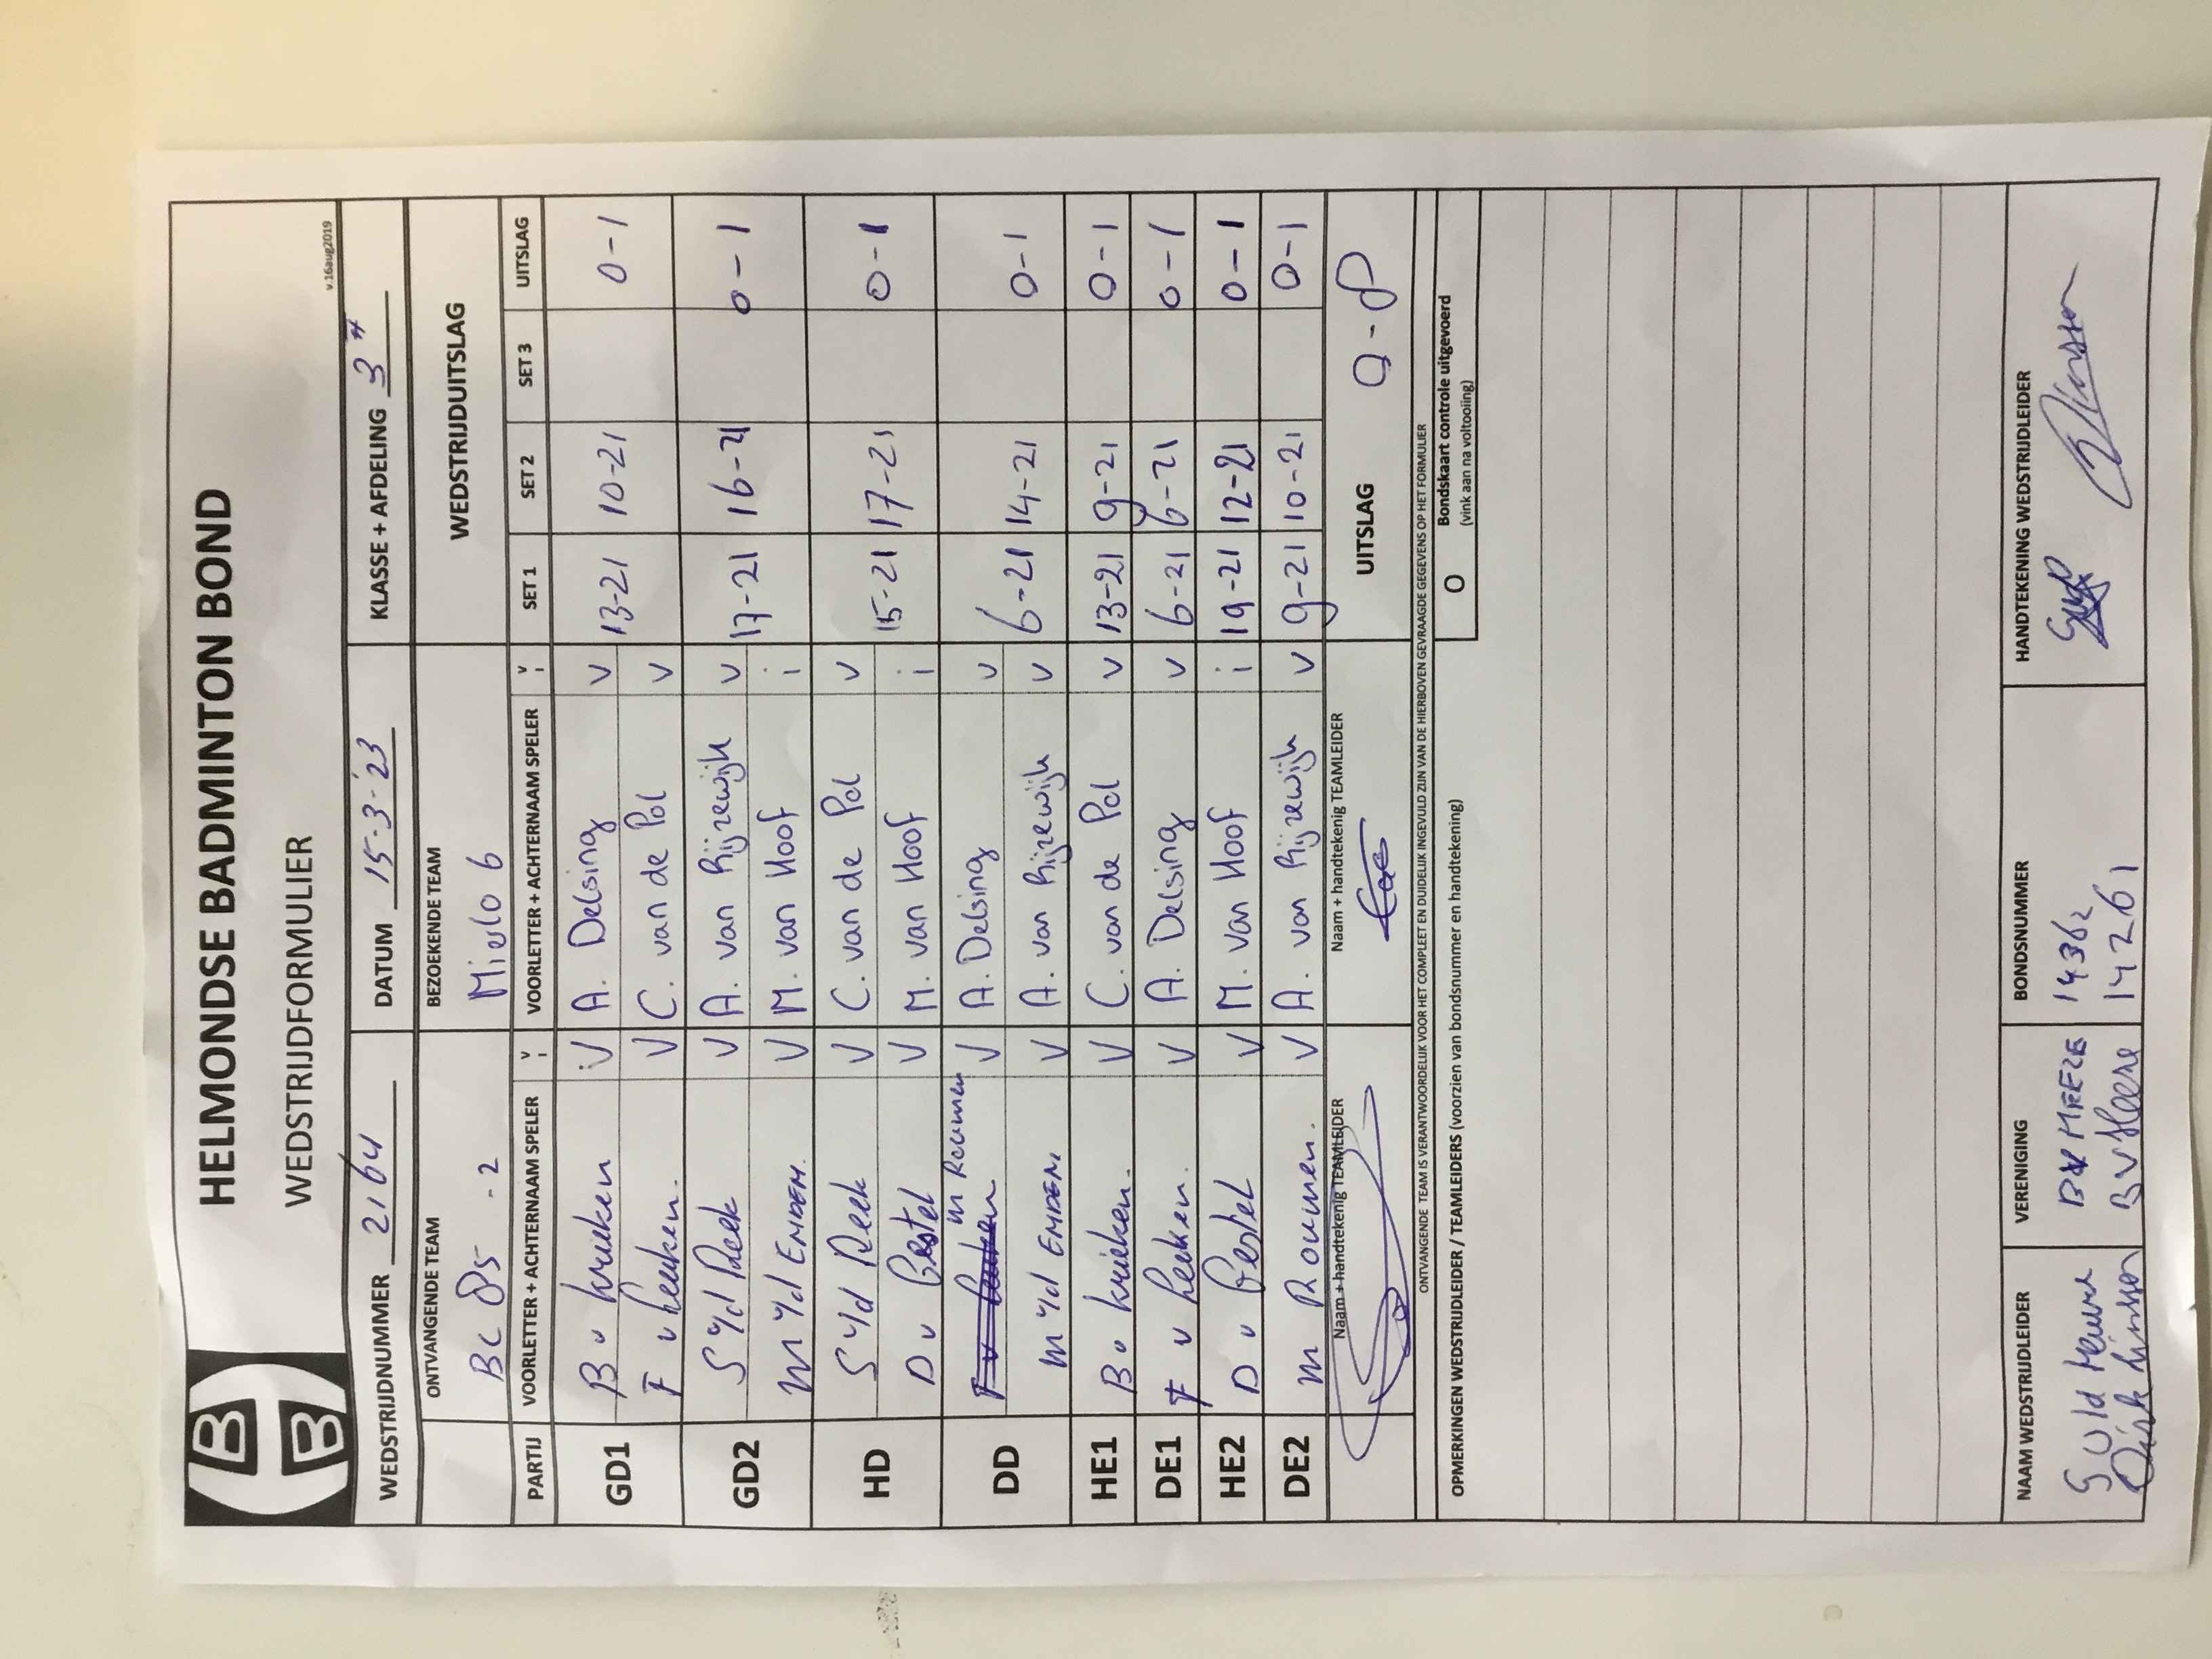 HELMONDSE BADMINTON BOND
WEDSTRIJDFORMULIER
v.16aug2019
WEDSTRIJDNUMMER 2164 DATUM 15-3-'23 KLASSE + AFDELING 3
ONTVANGENDE TEAM BEZOEKENDE TEAM WEDSTRIJDUITSLAG
BC 85 - 2 Mierlo 6
PARTIJ VOORLETTER + ACHTERNAAM SPELER V i VOORLETTER + ACHTERNAAM SPELER V i SET 1 SET 2 SET 3 UITSLAG
GD1 B v Krieken V A. Delsing V 13-21 10-21 0-1
F v Leuken. V C. van de Pol V
GD2 S v/d Reek V A. van Rijzewijk V 17-21 16-21 0-1
M v/d EMDEN. V M. van Hoof i
HD S v/d Reek V C. van de Pol V 15-21 17-21 0-1
D v Gestel V M. van Hoof i
DD M Roumen V A. Delsing V 6-21 14-21 0-1
M v/d EMDEN. V A. van Rijzewijk V
HE1 B v Krieken. V C. van de Pol V 13-21 9-21 0-1
DE1 F v Leuken. V A. Delsing V 6-21 6-21 0-1
HE2 D v Gestel V M. van Hoof i 19-21 12-21 0-1
DE2 M Roumen. V A. van Rijzewijk V 9-21 10-21 0-1
Naam + handtekenig TEAMLEIDER Naam + handtekenig TEAMLEIDER UITSLAG 0-8
ONTVANGENDE TEAM IS VERANTWOORDELIJK VOOR HET COMPLEET EN DUIDELIJK INGEVULD ZIJN VAN DE HIERBOVEN GEVRAAGDE GEGEVENS OP HET FORMULIER
OPMERKINGEN WEDSTRIJDLEIDER / TEAMLEIDERS (voorzien van bondsnummer en handtekening) O Bondskaart controle uitgevoerd
(vink aan na voltooiing)
NAAM WEDSTRIJDLEIDER VERENIGING BONDSNUMMER HANDTEKENING WEDSTRIJDLEIDER
14362
14261